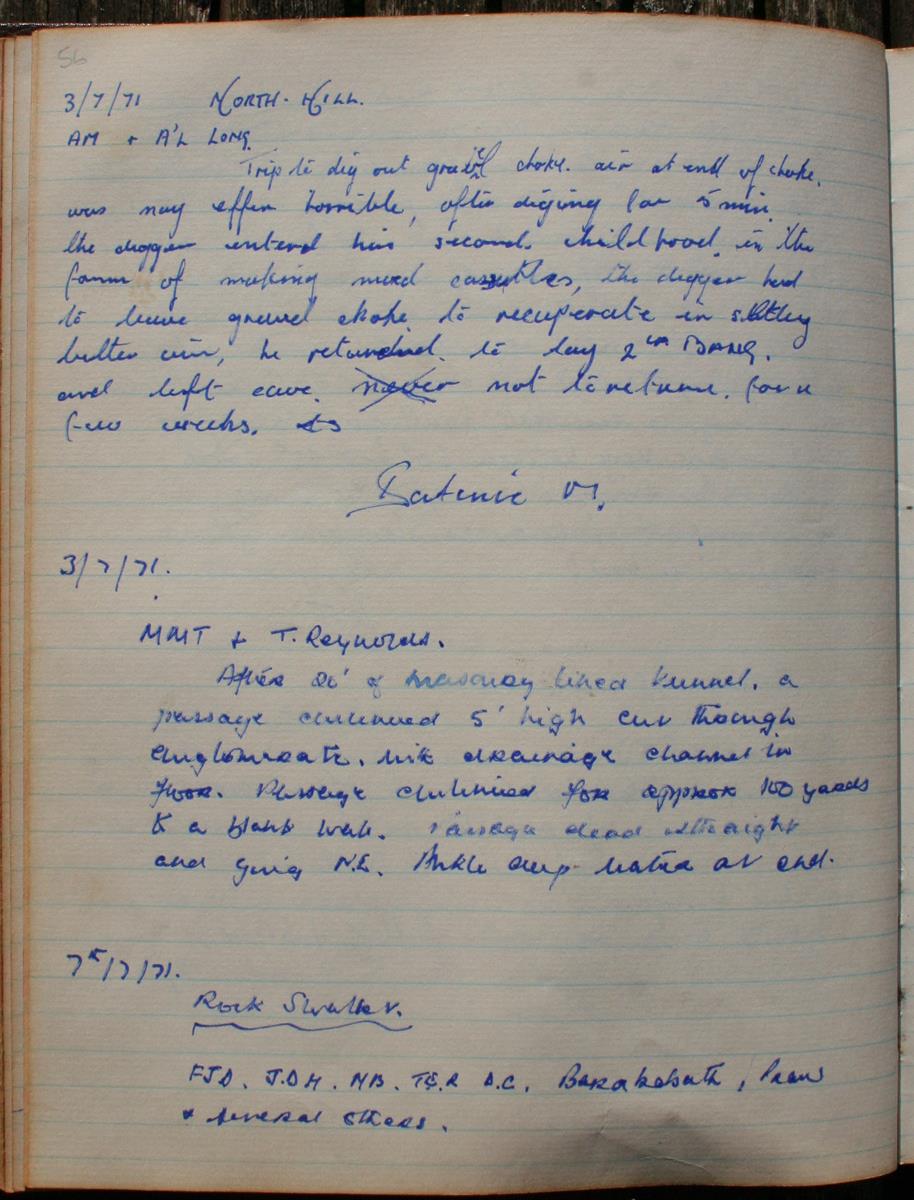 56
3/7/71 NORTH HILL.
AM + A'L LONG.
Trip to dig out gravel choke. air at end of choke.
was may effen horrible, after diging for 5 min
the digger enterd his second childhood, in the
form of making mud castles, the digger had
to leave gravel choke to recuperate in slitley
better air, he returned. to lay 2nd BANG.
and left cave. never not to return. for a
few weeks.
3/7/71.
MMT & T. Reynolds.
After 20' of masonry lined tunnel, a
passage continued 5' high cut through
conglomerate, with drainage channel in
floor. Passage continued for approx 100 yards
to a blank wall. Passage dead straight
and going N.E. Ankle deep water at end.
7th/7/71.
Rock Swallet.
FJD. J.D.H. MB. TER D.C. , Prew
& several others.